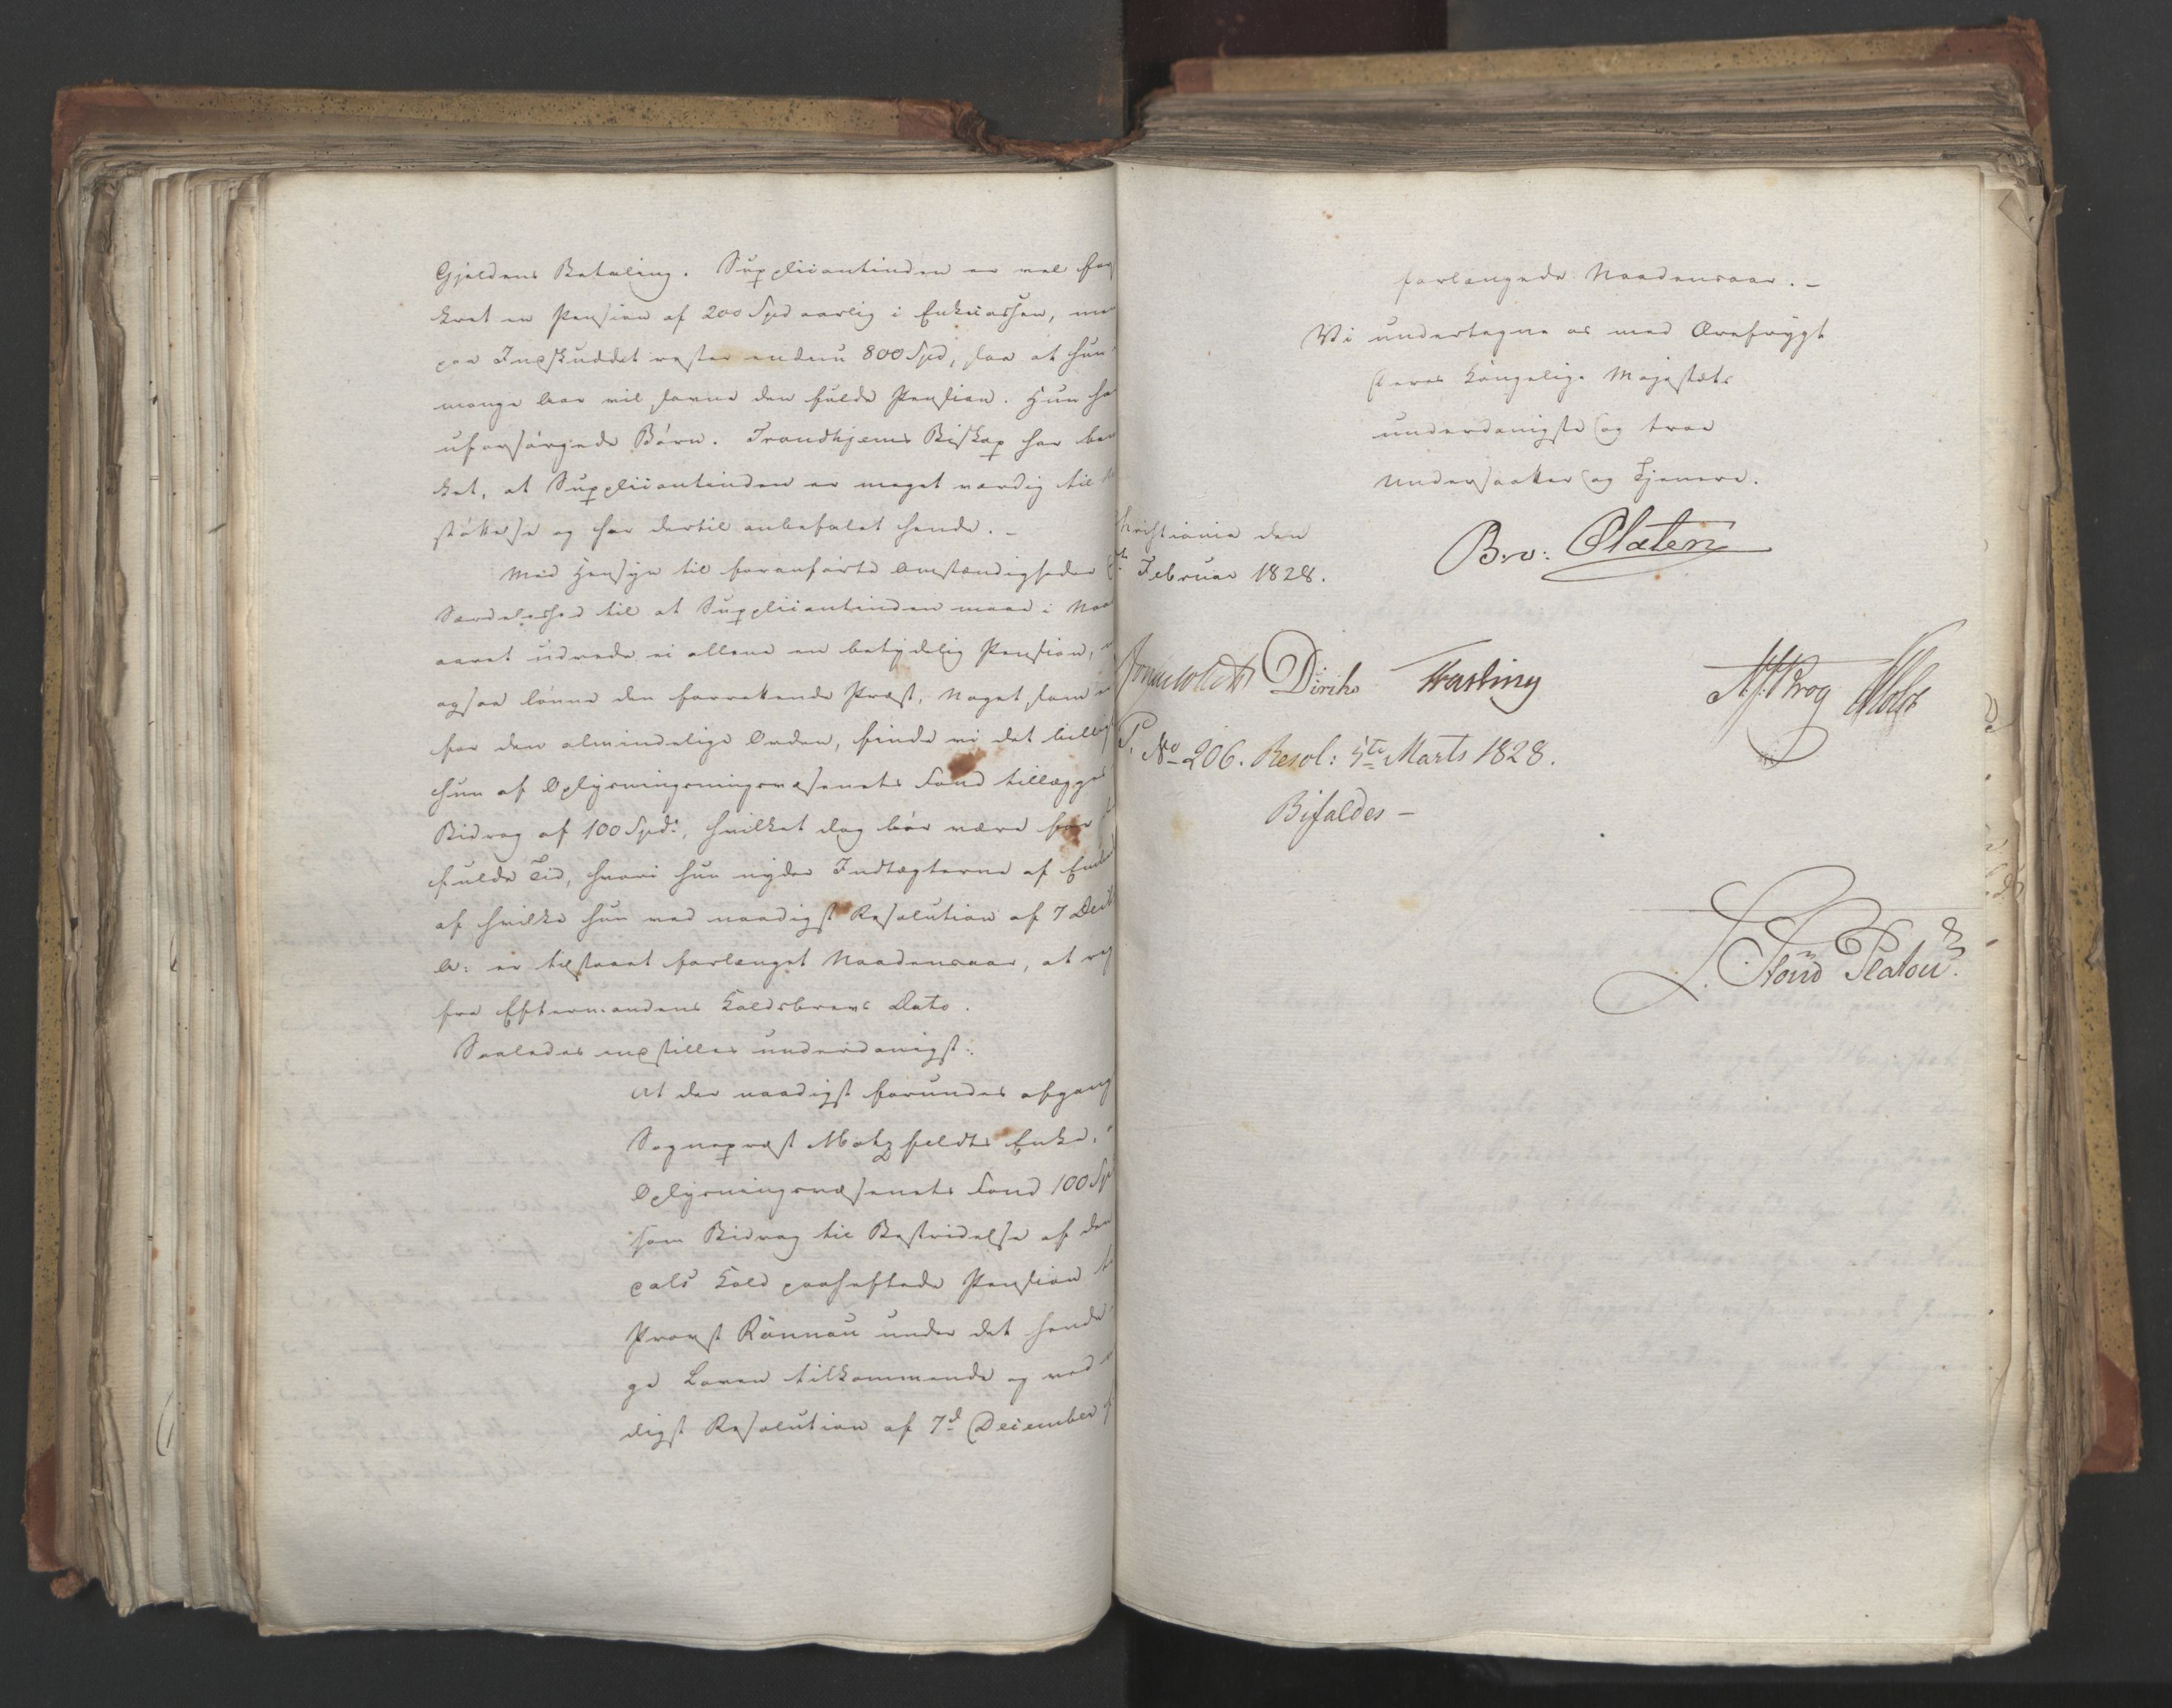 Gjeldens Betaling. Suppliiantinden er vel for
kret en Pension af 200 Spd aarlig i Enkeiassen, men
paa Indskuddet rester endnu 800 Spd, saa at hun
mange Aar vil savne den fulde Pension. Hun ha
uforsørgede Børn. Trondhjems Biskop har be
ket, at Suppliiantinden er meget værdig til
støttelse og har dertil anbefalet hende. –
Med Hensyn til foranførte Omstændigheder
Særdeleshed til at Suppliiantinden maae i Naa
aaret udrede ei allene en betydelig Pension,
ogsaa lønne den forrettende Præst, noget, som
for den almindelige Orden, finde vi det billig
hun af Oplysningsningsvæsenets Fond tillægges
Bidrag af 100 Spd, hvilket dog bør være for
fulde Tid, hvori hun nyder Indtægterne af Em
af hvilke hun ved naadigst Resolution af 7 De
A: er tilstaaet forlænget Naadensaar, at re
fra Eftermandens Kaldsbrevs Dato.
Saaledes indstilles underdanigst:
At der naadigst forundes afgang
Sognepræst Motzfeldts Enke,
Oplysningsvæsenets Fond 100 Sp
som Bidrag til Bestridelse af den
dals Kald paaheftede Pension
Provst Rønnau under det hende
ge Loven tilkommende og ved
digst Resolution af 7d December
forlængede Naadensaar. –
Vi undertegne os med Ærefrygt
Deres Kongelige Majestæts
underdanigste og troe
Undersaatter og Tjenere.
hristiania den
Februar 1828.
B. v: Platen
Diriks Fasting
M. Krog Holst
P. No 206. Resol: 5te Marts 1828.
Bifaldes –
L. Stoud Platou